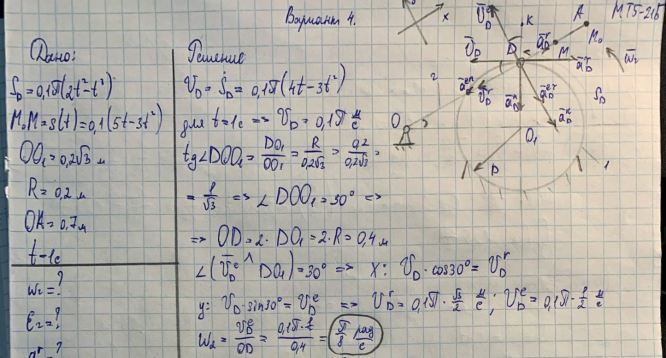 Вариант 4.
МТ5-21Б
Дано:
S_D = 0,1π(2t²-t³)
M₀M = s(t) = 0,1(5t-3t²)
OO₁ = 0,2√3 м
R = 0,2 м
OA = 0,7 м
t = 1c
ω₂ = ?
ε₂ = ?
Решение
V_D = Ṡ_D = 0,1π(4t-3t²)
для t=1c => V_D = 0,1π м/с
tg∠DOO₁ = DO₁/OO₁ = R/0,2√3 = 0,2/0,2√3 =
= 1/√3 => ∠DOO₁ = 30° =>
=> OD = 2·DO₁ = 2·R = 0,4 м
∠(V̄_D^e ^ DO₁) = 30° => X: V_D·cos30° = V_D^r
y: V_D·sin30° = V_D^e => V_D^r = 0,1π·√3/2 м/с; V_D^e = 0,1π·1/2 м/с
ω₂ = V_D^e/OD = 0,1π·½/0,4 = π/8 рад/с
x
V̄_D^e
K
A
M₀
ā_D^r
M
D
V̄_D
ω̄₂
2
V̄_D^r
S_D
O
O₁
P
1